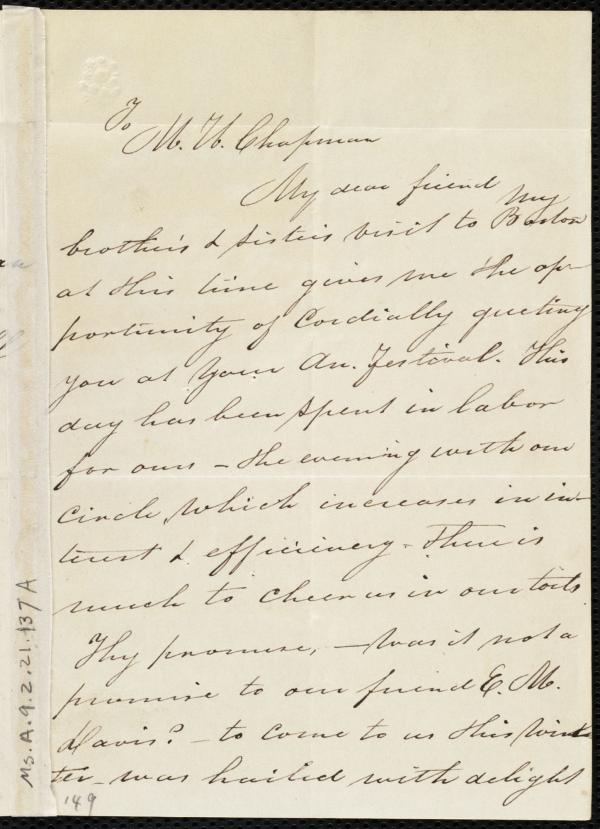 To
M. W. Chapman
My dear friend my
brother's & sister's visit to Boston
at this time gives me the op-
portunity of cordially greeting
you at your An. Festival. This
day has been spent in labor
for ours - the evening with our
circle, which increases in in-
terest & efficiency - There is
much to cheer us in our toils
Thy promise, - was it not a
promise to our friend E. M.
Davis? - to come to us this win-
ter - was hailed with delight
Ms.A.9.2.21.137A
149